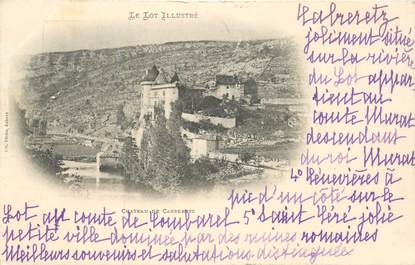 LE LOT ILLUSTRÉ
Cabreretz
joliment situé
sur la rivière
du Lot appar-
tient au
comte Murat
descendant
du roi Murat
4° Génevières à
pic d'un côté sur le
Lot au comte de Lombarel 5° Saint Céré jolie
petite ville dominée par des ruines romaines
Meilleurs souvenirs et salutations distinguées